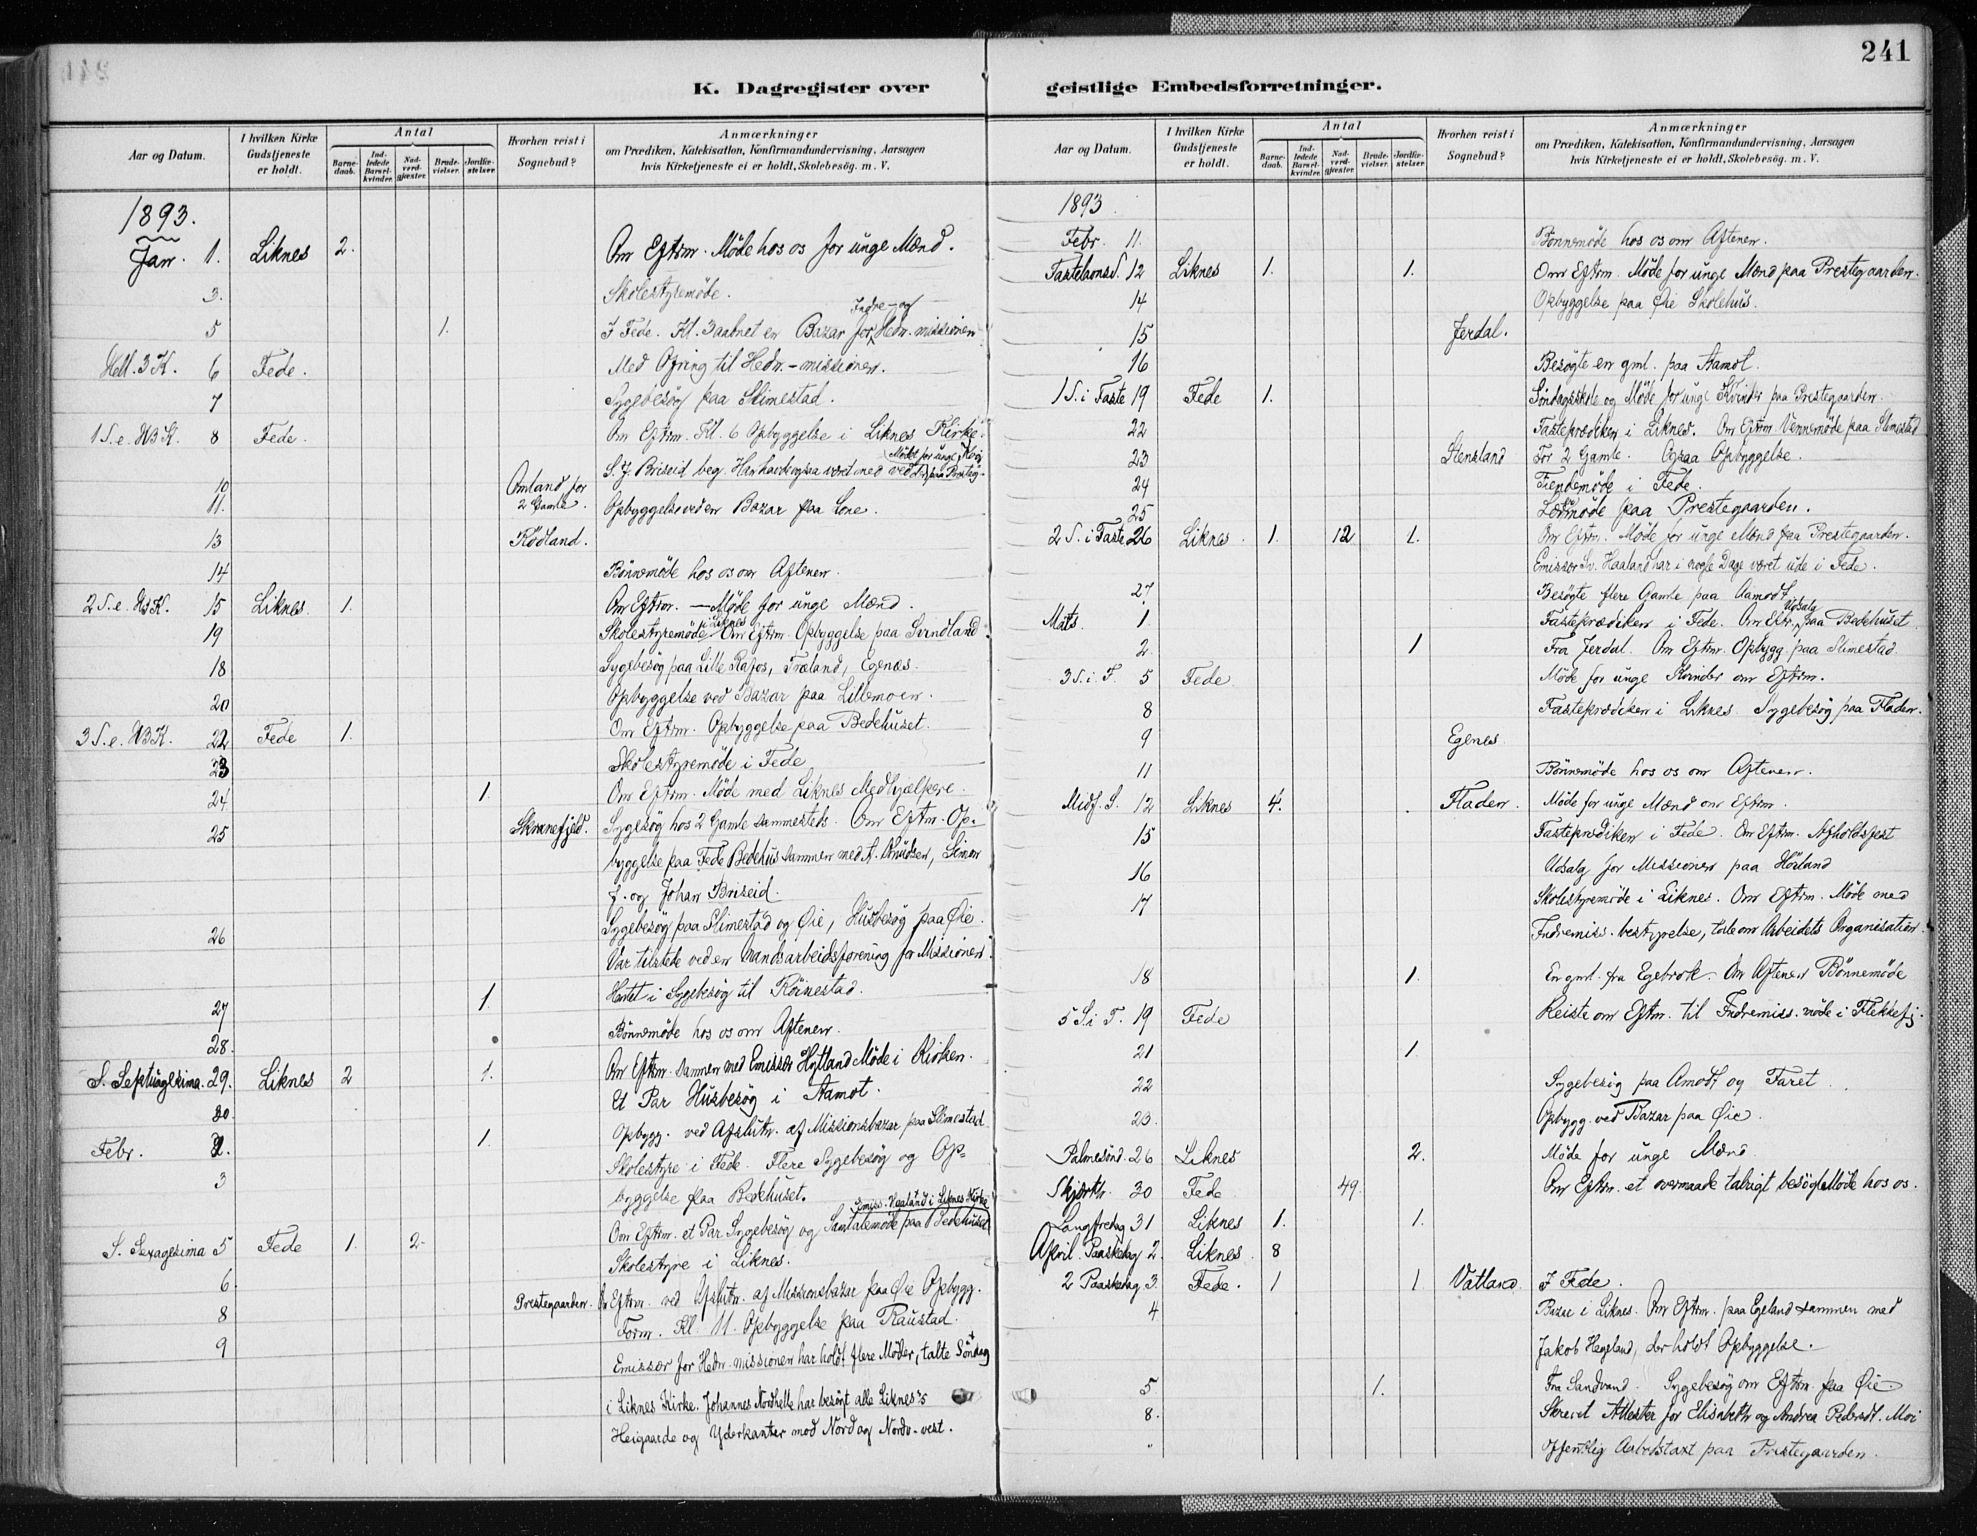 241
K. Dagregister over geistlige Embedsforretninger.
Aar og Datum. I hvilken Kirke Gudstjeneste er holdt. Antal Barne-daab. Ind-ledede Barsel-kvinder. Nad-verd-gjæster. Brude-vielser. Jordfæ-stelser. Hvorhen reist i Sognebud? Anmærkninger om Prædiken, Katekisation, Konfirmandundervisning, Aarsagen hvis Kirketjeneste ei er holdt, Skolebesøg. m. V.
1893.
Jan. 1. Liknes 2. Om Eftrm. Møde hos os for unge Mænd.
3. Skolestyremøde.
5 1. I Fede. Kl. 3 aabnet en Bazar for Indre- og Hedn. missionen
Hell. 3 K. 6 Fede. Med Ofring til Hedn.-missionen.
7 Sygebesøg paa Slimestad.
1 S. e. H3K. 8 Fede. Om Eftrm. Kl. 6 Opbyggelse i Liknes Kirke.
S. J. Briseid beg.
10 Omland for 2 Gamle.
11. Opbyggelse ved en Bazar paa Lone.
13 Rødland.
14 Bønnemøde hos os om Aftenen.
2 S. e. H3K. 15 Liknes 1. Om Eftrm. — Møde for unge Mænd.
19 Skolestyremøde i Liknes Om Eftrm. Opbyggelse paa Svindland
18 Sygebesøg paa Lille Rafos, Træland, Egenæs.
20 Opbyggelse ved Bazar paa Lillemoen.
3 S. e. H3K. 22 Fede 1. Om Eftrm. Opbyggelse paa Bedehuset.
23 Skolestyremøde i Fede
24 1. Om Eftrm. Møde med Liknes Medhjælpere.
25 Sygesøg hos 2 Gamle sammesteds. Om Eftm. Op-
byggelse paa Fede Bedehus sammen med A. Knudsen, Simon
J. og Johan Briseid.
26 Sygebesøg paa Slimestad og Øie, Husbesøg paa Øie.
Var tilstede ved en Mandsarbeidsforening for Missionen.
27 1 Hentet i Sygebesøg til Røinestad.
28. Bønnemøde hos os om Aftenen.
S. Septuagesima. 29. Liknes 2 1. Om Eftrm. sammen med Emissær Hytland Møde i Kirken.
30 Et Par Husbesøg i Aamot.
Febr. 2. 1. Opbygg. ved Afslutn. af Missionsbazar paa Slimestad
3 Skolestyre i Fede. Flere Sygebesøg og Op-
byggelse paa Bedehuset.
S. Sexagesima 5 Fede 1. 2 Om Eftrm. et Par Sygebesøg og Samtalemøde paa Bedehuset Emiss. Haaland i Liknes Kirke
6 Skolestyre i Liknes.
8 Prestegaarden. Om Eftrm. ved Afslutn. af Missionsbazar paa Øie Opbygg.
9 Form. Kl. 11. Opbyggelse paa Raustad.
Emissær for Hedn. missionen har holdt flere Møder, talte Søndag
i Liknes Kirke. Johannes Nordhelle har besøgt alle Liknes's
Heigaarde og Yderkanter mod Nord og Nordv-vest.
Aar og Datum. I hvilken Kirke Gudstjeneste er holdt. Antal Barne-daab. Ind-ledede Barsel-kvinder. Nad-verd-gjæster. Brude-vielser. Jordfæ-stelser. Hvorhen reist i Sognebud? Anmærkninger om Prædiken, Katekisation, Konfirmandundervisning, Aarsagen hvis Kirketjeneste ei er holdt, Skolebesøg. m. V.
1893
Febr. 11. Bønnemøde hos os om Aftenen.
Fastelavns S. 12 Liknes 1. 1. Om Eftrm. Møde for unge Mænd paa Prestegaarden.
14 Opbyggelse paa Øie Skolehus.
15 Jerdal.
16 Besøgte en gml. paa Aamot.
1 S. i Faste 19 Fede 1. Søndagsskole og Møde for unge Kvinder paa Prestegaarden.
22 Fasteprædiken i Liknes. Om Eftrm. Vennemøde paa Slimestad
23 Stensland For 2 Gamle. Ogsaa Opbyggelse.
24 møde i Fede.
25 møde paa Prestegaarden.
2 S. i Faste 26 Liknes 1. 12 1. Om Eftrm. Møde for unge Mænd paa Prestegaarden.
Emissær Sv. Haaland har i nogle Dage været ude i Fede.
27 Besøgte flere Gamle paa Aamodt.
Mats. 1. Fasteprædiken i Fede. Om Eftr. Udsalg paa Bedehuset.
2. 1 Fra Jerdal. Om Eftrm. Opbygg. paa Slimestad.
3 S. i F. 5 Fede Møde for unge Kvinder om Eftrm.
8 Fasteprædiken i Liknes. Sygebesøg paa Fladen.
9 Egenes.
11 Bønnemøde hos os om Aftenen.
Midf. S. 12 Liknes 4. Fladen. Møde for unge Mænd om Eftrm.
15 Fasteprædiken i Fede. Om Eftrm. Afholdsfest
16 Udsalg for Missionen paa Høiland
17 Skolestyremøde i Liknes. Om Eftrm. Møde med
Indremiss. bestyrelse, tale om Arbeidets Organisation.
18 1. En gml. fra Egebrok. Om Aftenen Bønnemøde
5 S. i F. 19 Fede Reiste om Eftrm. til Indremiss. møde i Flekkefj.
21 1.
22 Sygebesøg paa Amodt og Faret.
23. Opbygg. ved Bazar paa Øie.
Palmesønd. 26 Liknes 2. Møde for unge Mænd.
Skjærth. 30 Fede 49. Om Eftrm. et overmaade talrigt besøgt Møde hos os.
Langfredag 31 Liknes 1. 1.
April. Paaskedag 2. Liknes 8
2 Paaskedag 3. Fede. 1 1 Vatland I Fede.
4 Bazar i Liknes. Om Eftrm. paa Egeland sammen med
Jakob Hegeland, der holdt Opbyggelse.
5 1. Fra Sandvand. Sygebesøg om Eftrm. paa Øie
8. Skrevet Attester for Elisabeth og Andrea Pedersdt. Moi
" Offentlig Aabodstaxt paa Prestegaarden.